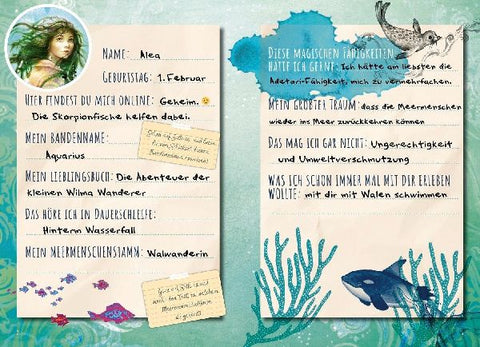 NAME: Alea
GEBURTSTAG: 1. Februar
HIER FINDEST DU MICH ONLINE: Geheim.
Die Skorpionfische helfen dabei.
MEIN BANDENNAME:
Aquarius
MEIN LIEBLINGSBUCH: Die Abenteuer der
kleinen Wilma Wanderer
DAS HÖRE ICH IN DAUERSCHLEIFE:
Hinterm Wasserfall
MEIN MEERMENSCHENSTAMM: Walwanderin
DIESE MAGISCHEN FÄHIGKEITEN
HÄTTE ICH GERNE: Ich hätte am liebsten die
Adetari-Fähigkeit, mich zu vermehrfachen.
MEIN GRÖßTER TRAUM: dass die Meermenschen
wieder ins Meer zurückkehren können
DAS MAG ICH GAR NICHT: Ungerechtigkeit
und Umweltverschmutzung
WAS ICH SCHON IMMER MAL MIT DIR ERLEBEN
WOLLTE: mit dir mit Walen schwimmen